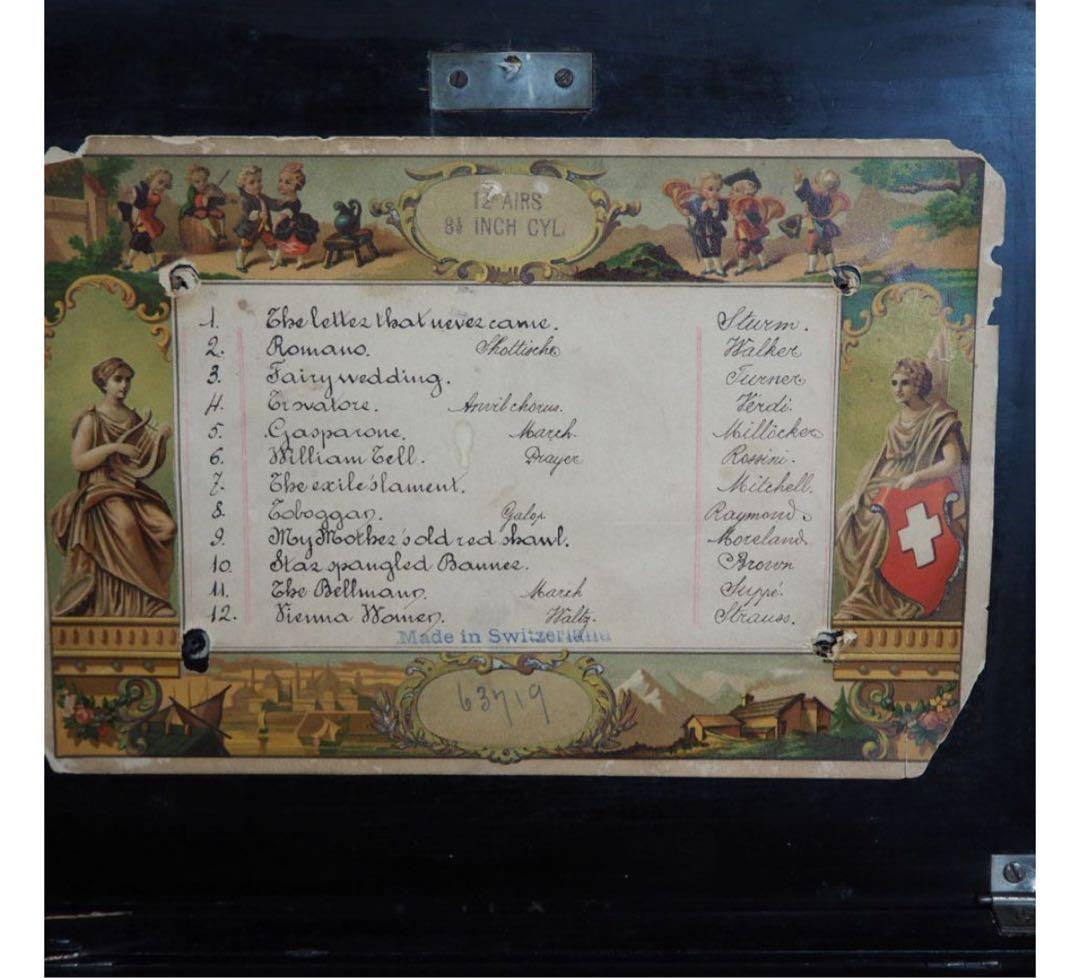 12 AIRS
8½ INCH CYL.
1. The letter that never came. Sturm.
2. Romano. Shottische Walker
3. Fairy wedding. Turner
4. Trovatore. Anvil chorus. Verdi.
5. Gasparone. March. Millöcker
6. William Tell. Prayer Rossini.
7. The exile's lament. Mitchell.
8. Toboggan. Galop Raymond
9. My Mother's old red shawl. Moreland
10. Star spangled Banner. Brown
11. The Bellmann. March Suppé.
12. Vienna Women. Waltz. Strauss.
Made in Switzerland
63719